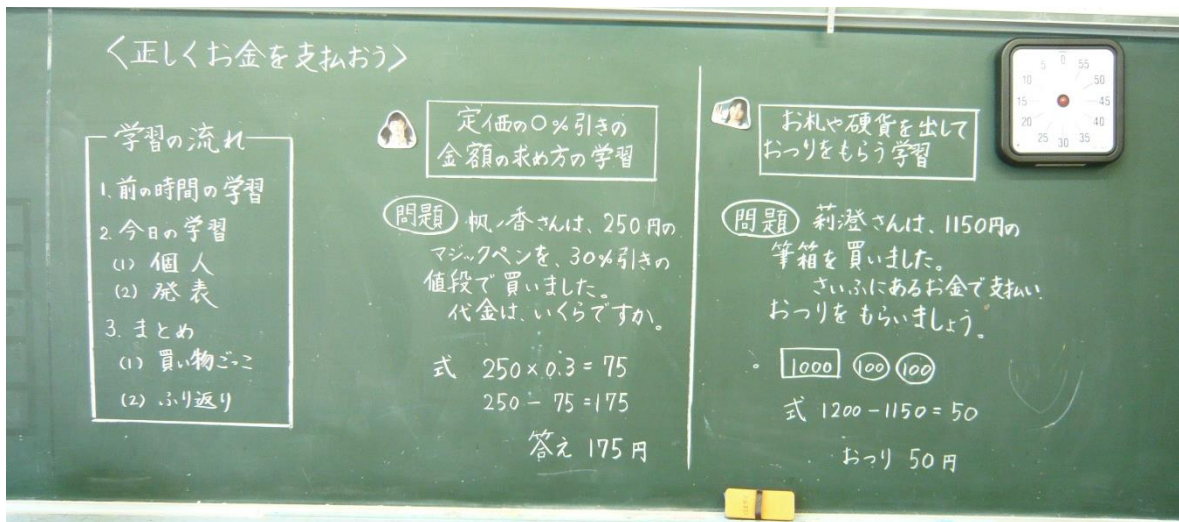 〈正しくお金を支払おう〉
学習の流れ
1. 前の時間の学習
2. 今日の学習
(1) 個人
(2) 発表
3. まとめ
(1) 買い物ごっこ
(2) ふり返り
定価の〇%引きの
金額の求め方の学習
問題 帆ノ香さんは、250円の
マジックペンを、30%引きの
値段で買いました。
代金は、いくらですか。
式 250×0.3=75
250-75=175
答え 175円
お札や硬貨を出して
おつりをもらう学習
問題 莉澄さんは、1150円の
筆箱を買いました。
さいふにあるお金で支払い、
おつりをもらいましょう。
1000 100 100
式 1200-1150=50
おつり 50円
0 55 50 45 40 35 30 25 20 15 10 5